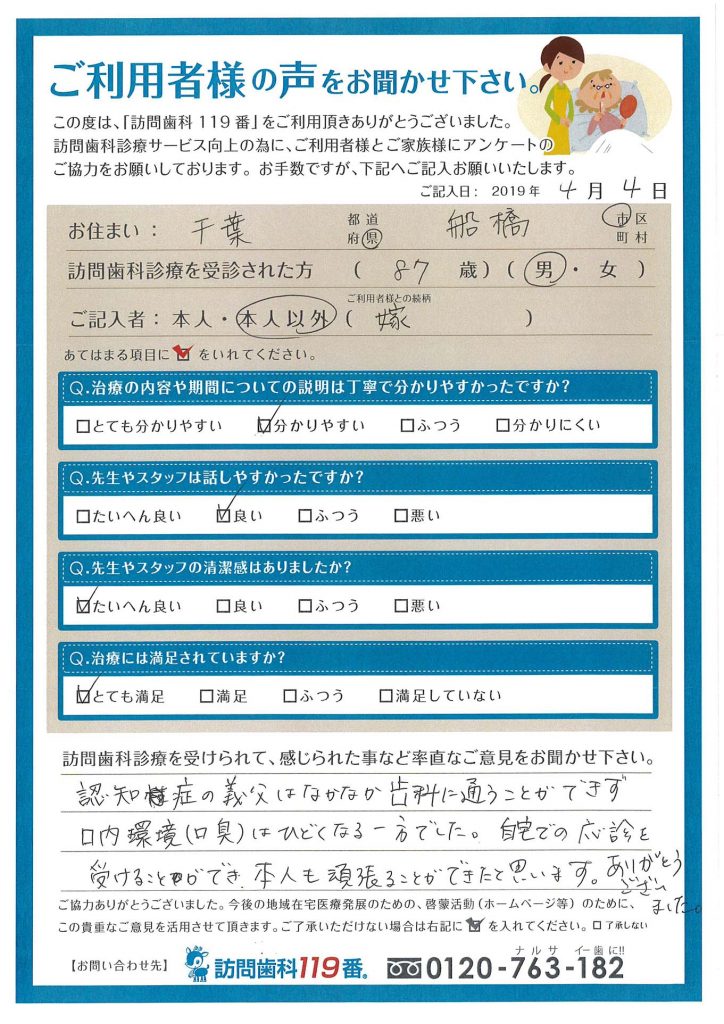 ご利用者様の声をお聞かせ下さい。
この度は、「訪問歯科119番」をご利用頂きありがとうございました。
訪問歯科診療サービス向上の為に、ご利用者様とご家族様にアンケートの
ご協力をお願いしております。お手数ですが、下記へご記入お願いいたします。
ご記入日： 2019年 4月 4日
お住まい： 千葉 都道府県 船橋 市区町村
訪問歯科診療を受診された方 （ 87 歳）（ 男・女 ）
ご利用者様との続柄
ご記入者：本人・本人以外（ 嫁 ）
あてはまる項目に☑をいれてください。
Q.治療の内容や期間についての説明は丁寧で分かりやすかったですか？
□とても分かりやすい ☑分かりやすい □ふつう □分かりにくい
Q.先生やスタッフは話しやすかったですか？
□たいへん良い ☑良い □ふつう □悪い
Q.先生やスタッフの清潔感はありましたか？
☑たいへん良い □良い □ふつう □悪い
Q.治療には満足されていますか？
☑とても満足 □満足 □ふつう □満足していない
訪問歯科診療を受けられて、感じられた事など率直なご意見をお聞かせ下さい。
認知症の義父はなかなか歯科に通うことができず
口内環境(口臭)はひどくなる一方でした。自宅での応診を
受けることができ、本人も頑張ることができたと思います。ありがとう
ござい
ました。
ご協力ありがとうございました。今後の地域在宅医療発展のための、啓蒙活動（ホームページ等）のために、
この貴重なご意見を活用させて頂きます。ご了承いただけない場合は右記に☑を入れてください。□了承しない
ナルサ イー歯に!!
【お問い合わせ先】 訪問歯科119番。 0120-763-182